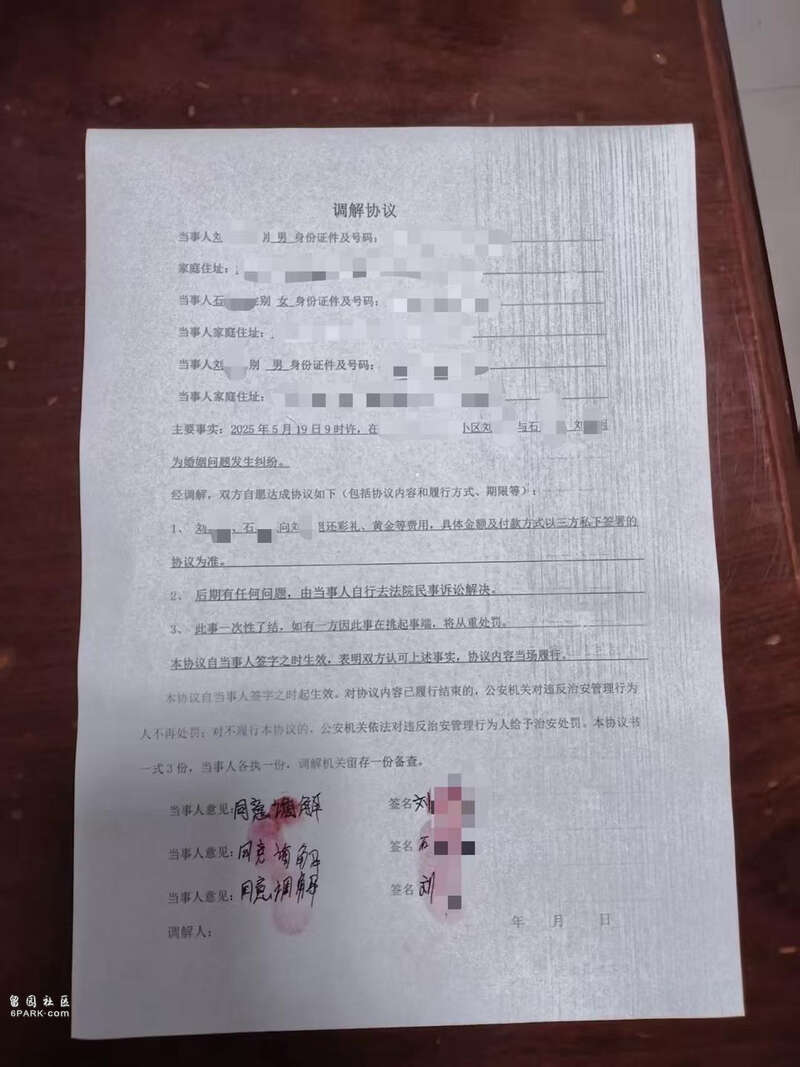 调解协议
当事人刘 别 男 身份证件及号码：
家庭住址：
当事人石 别 女 身份证件及号码：
当事人家庭住址：
当事人刘 别 男 身份证件及号码：
当事人家庭住址：
主要事实：2025年5月19日9时许，在 小区刘 与石 刘
为婚姻问题发生纠纷。
经调解，双方自愿达成协议如下（包括协议内容和履行方式、期限等）：
1、 刘 、石 向刘 还彩礼、黄金等费用，具体金额及付款方式以三方私下签署的
协议为准。
2、 后期有任何问题，由当事人自行去法院民事诉讼解决。
3、 此事一次性了结，如有一方因此事在挑起事端，将从重处罚。
本协议自当事人签字之时生效，表明双方认可上述事实，协议内容当场履行。
本协议自当事人签字之时起生效。对协议内容已履行结束的，公安机关对违反治安管理行为
人不再处罚；对不履行本协议的，公安机关依法对违反治安管理行为人给予治安处罚。本协议书
一式3份，当事人各执一份，调解机关留存一份备查。
当事人意见：同意调解 签名 刘
当事人意见：同意调解 签名 石
当事人意见：同意调解 签名 刘
调解人： 年 月 日
留园社区
6PARK.com